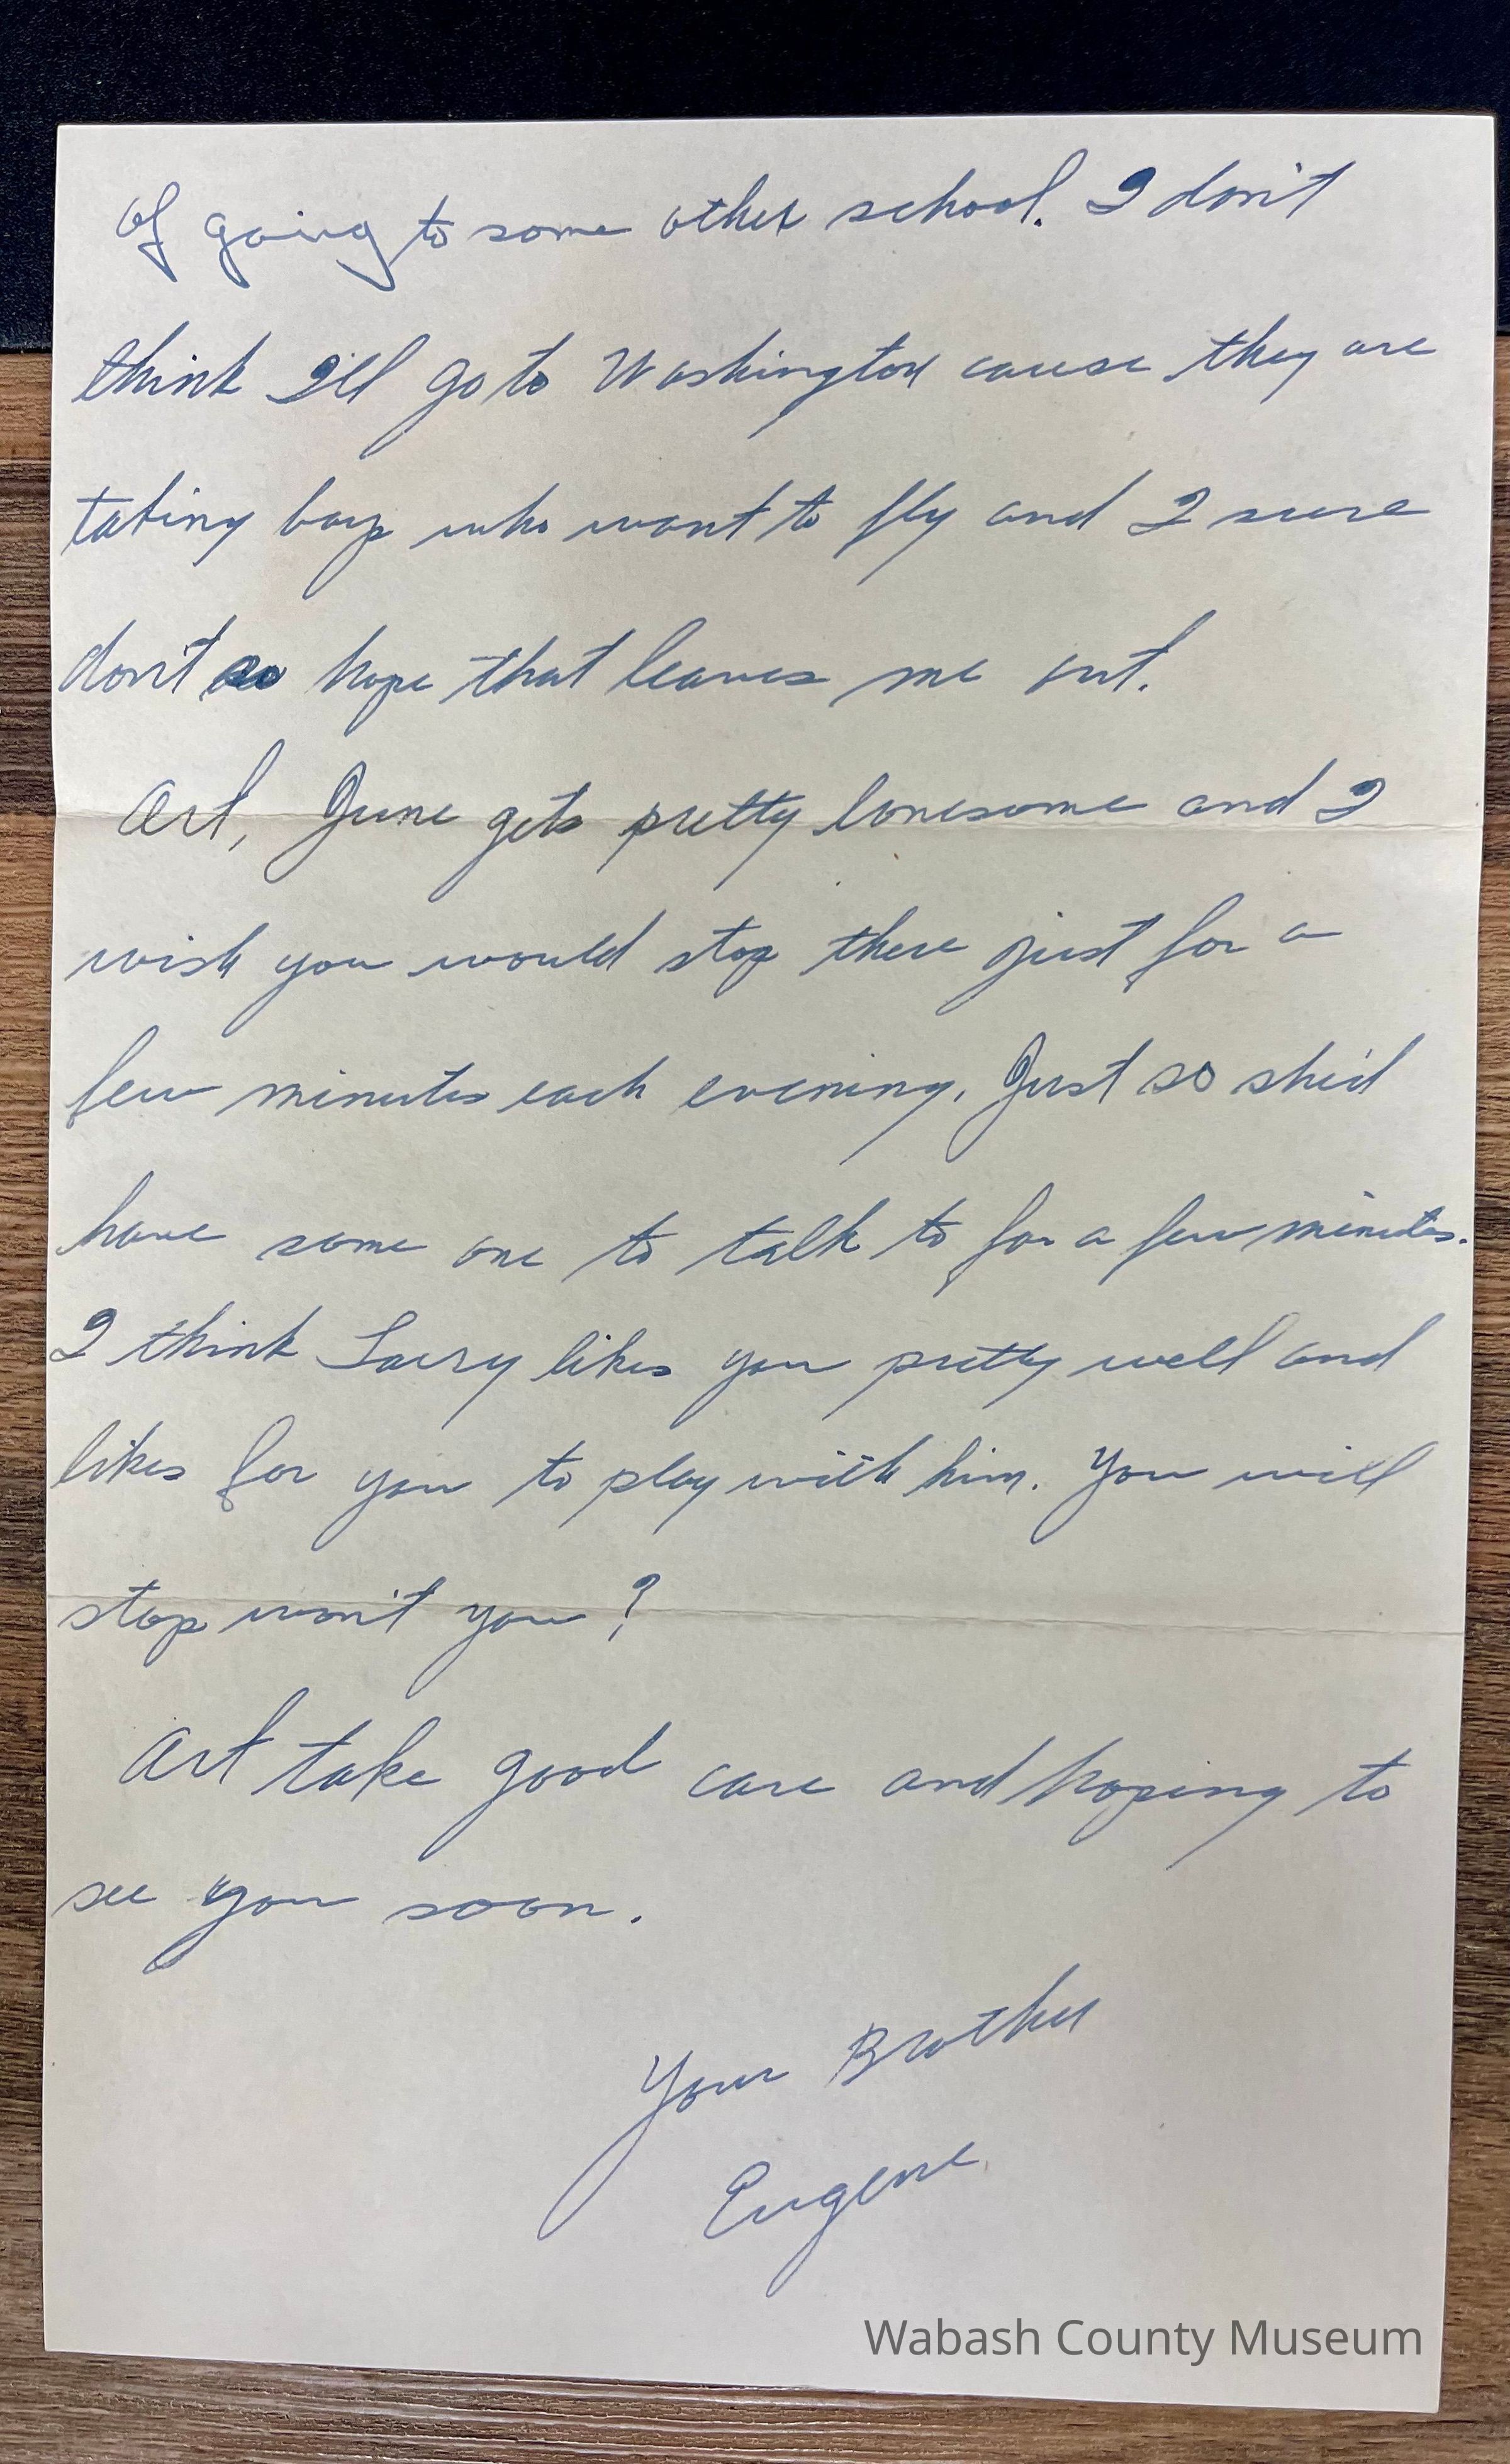 of going to some other school. I don't
think I'll go to Washington cause they are
taking boys who want to fly and I sure
don't so hope that leaves me out.
Art, June gets pretty lonesome and I
wish you would stop there just for a
few minutes each evening. Just so she'd
have some one to talk to for a few minutes.
I think Larry likes you pretty well and
likes for you to play with him. You will
stop won't you?
Art take good care and hoping to
see you soon.
Your Brother
Eugene
Wabash County Museum